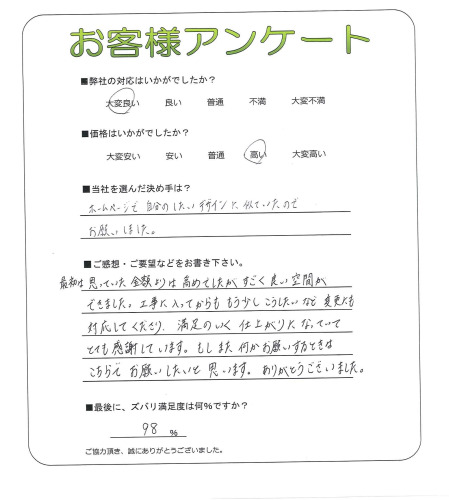 お客様アンケート
■弊社の対応はいかがでしたか？
大変良い 良い 普通 不満 大変不満
■価格はいかがでしたか？
大変安い 安い 普通 高い 大変高い
■当社を選んだ決め手は？
ホームページで 自分のしたい デザインに 似ていたので
お願いしました。
■ご感想・ご要望などをお書き下さい。
最初は思っていた 金額よりは 高めでしたが、すごく良い空間が
できました。工事に入ってからも もう少しこうしたいなど 変更にも
対応してくださり、満足のいく 仕上がりになっていて
とても感謝しています。もしまた 何かお願いする時は
こちらで お願いしたいと 思います。ありがとうございました。
■最後に、ズバリ満足度は何%ですか？
98 %
ご協力頂き、誠にありがとうございました。